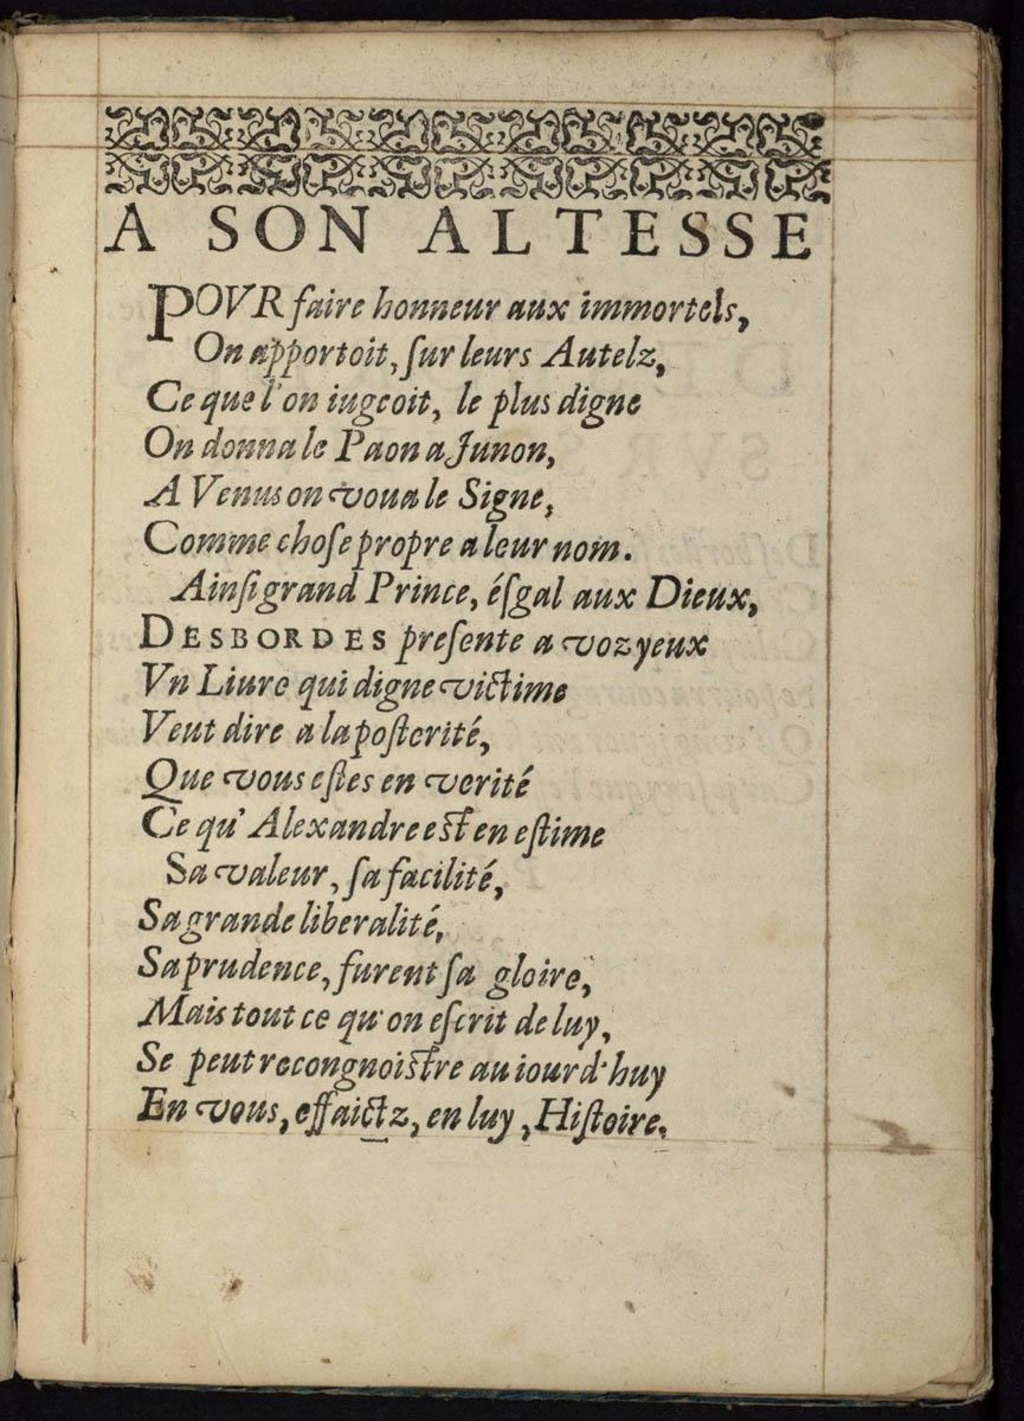 A SON ALTESSE
POVR faire honneur aux immortels,
On apportoit, ſur leurs Autelz,
Ce que l'on iugeoit, le plus digne
On donna le Paon a Junon,
A Venus on voua le Signe,
Comme choſe propre a leur nom.
Ainſi grand Prince, éſgal aux Dieux,
DESBORDES preſente a voz yeux
Vn Liure qui digne victime
Veut dire a la poſterité,
Que vous eſtes en verité
Ce qu' Alexandre eſt en eſtime
Sa valeur, ſa facilité,
Sa grande liberalité,
Sa prudence, furent ſa gloire,
Mais tout ce qu'on eſcrit de luy,
Se peut recongnoiſtre au iourd'huy
En vous, effaictz, en luy, Hiſtoire.